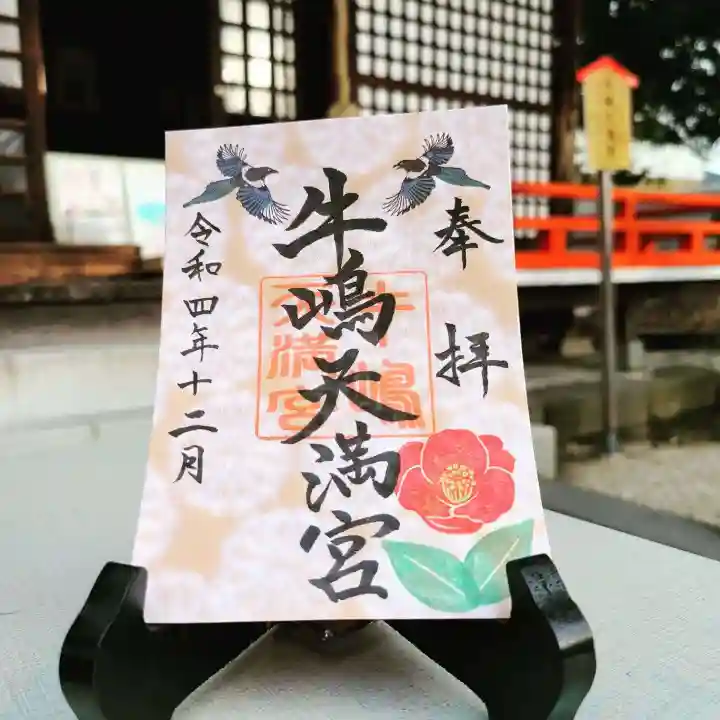 奉拝
牛嶋天満宮
牛嶋
天満宮
令和四年十二月